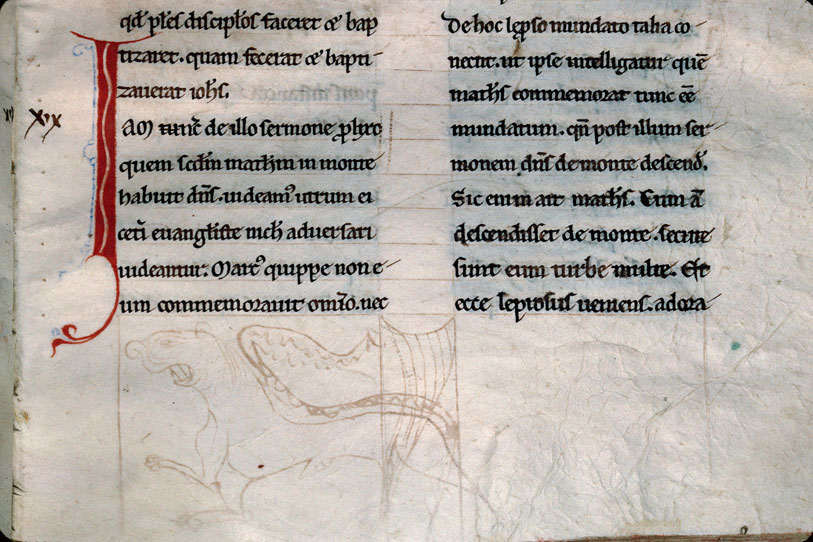 qd̄ ples̄ discip̄los faceret ⁊ bap
tizaret. quam fecerat ⁊ bapti-
zauerat ioh̄s.
xix
IAm nunc̄ de illo sermone ꝓlixo
quem scd̄m math̄m in monte
habuit dn̄s. uideam᷒ utrum ei
cet̄i euangeliste nich̄ aduersari
uideantur. Marc᷒ quippe non e-
um commemorauit om̄ıo. nec
de hoc lep̄so mundato talia co-
nectit. ut ipse intelligatur quē
math̄s commemorat tunc ēē
mundatum. qn̄ post illum ser-
monem dn̄s de monte descend̄.
Sic enim ait math̄s. Cum ā
descendisset de monte. secute
sunt eum turbe multe. Et
ecce leprosus ueniens. adora-